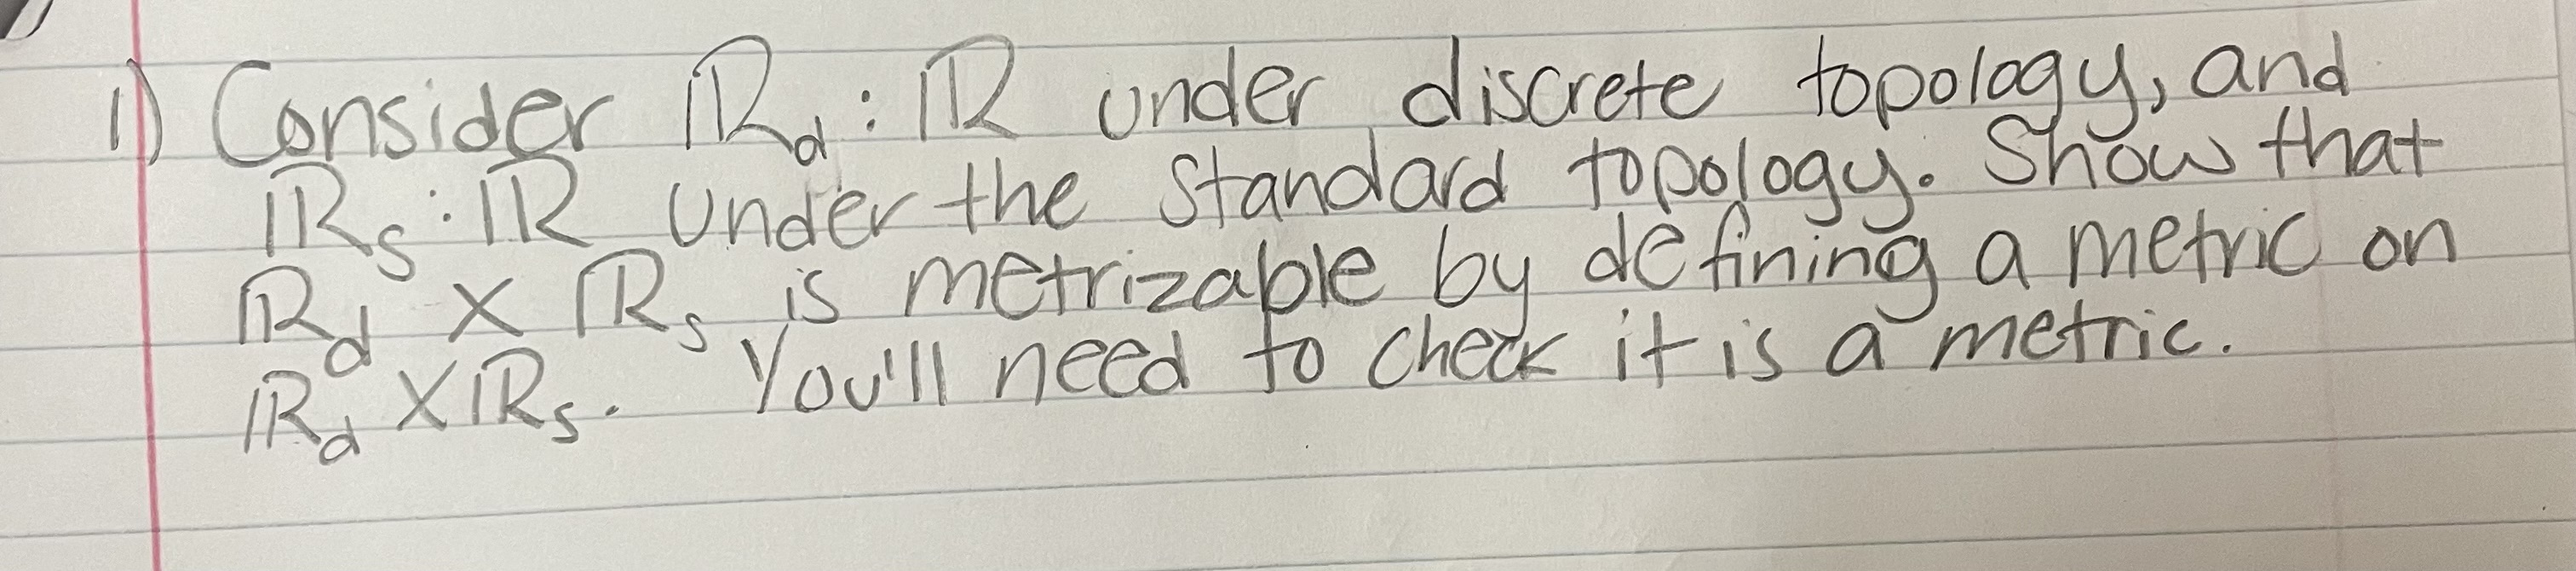 1) Consider ℝ_d : ℝ under discrete topology, and
ℝ_s : ℝ under the standard topology. Show that
ℝ_d × ℝ_s is metrizable by defining a metric on
ℝ_d × ℝ_s. You'll need to check it is a metric.